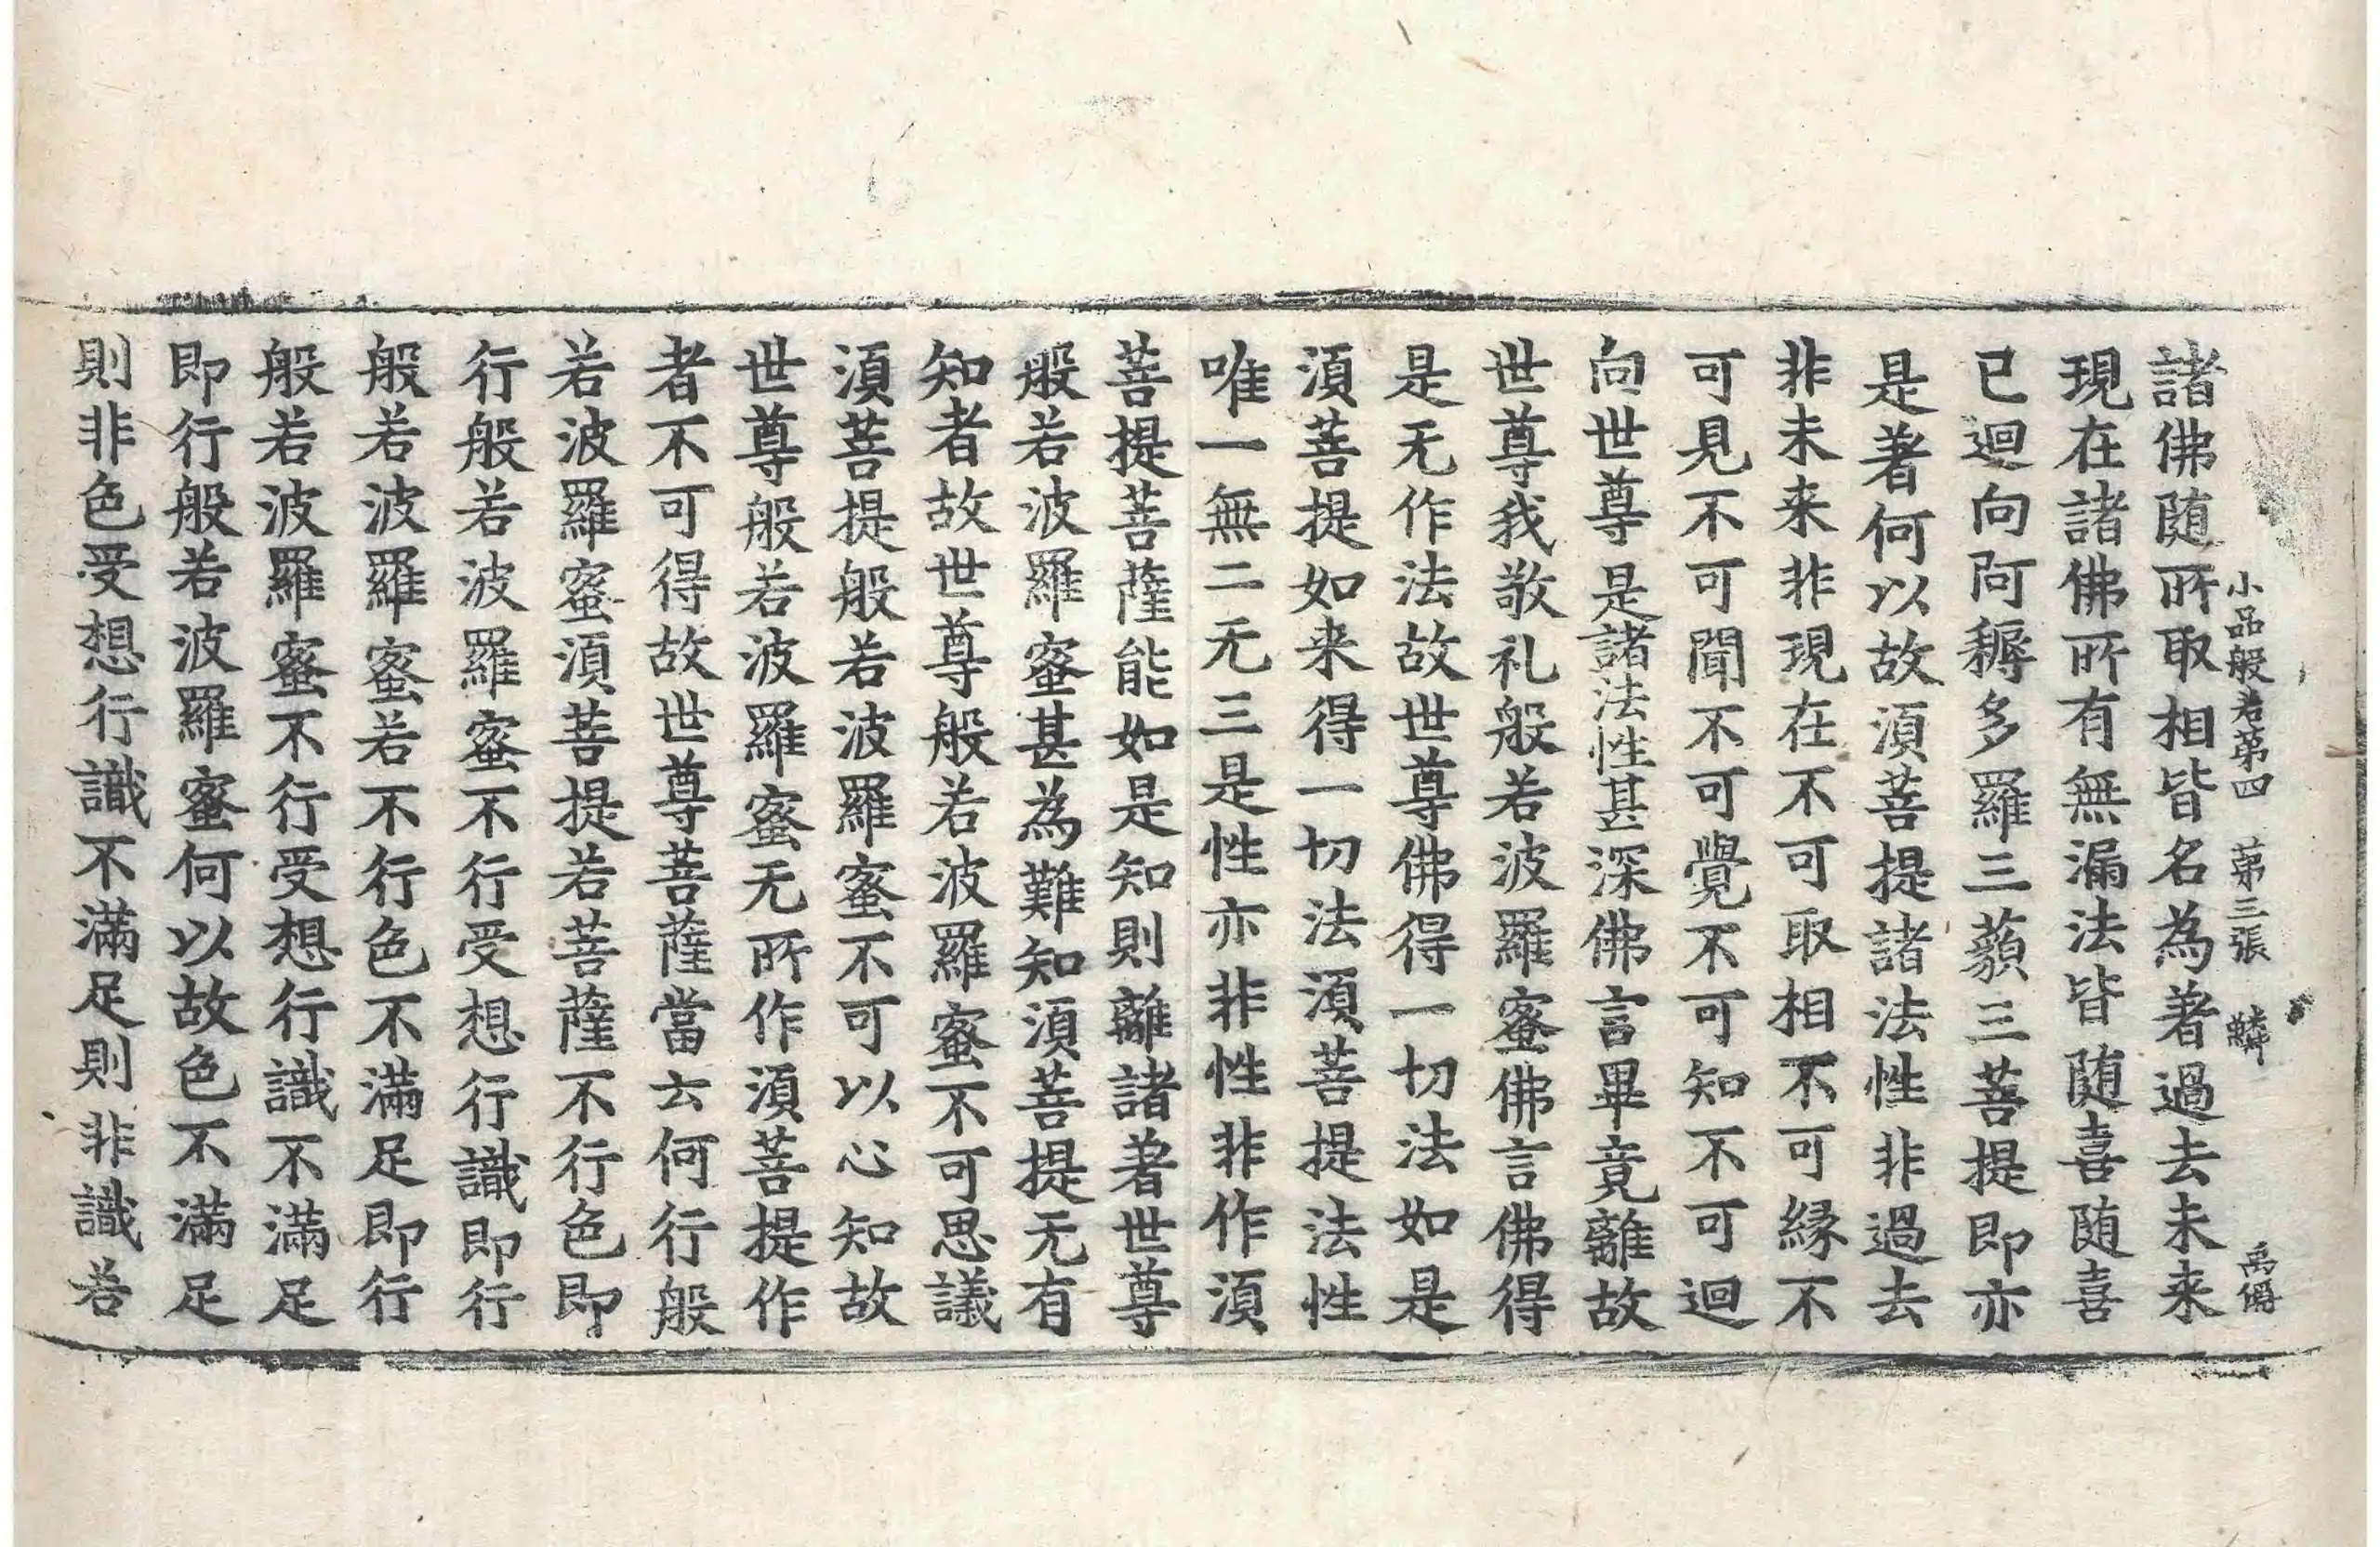 小品般若第四 第三張 鱗 禹儞
諸佛随所取相皆名為著過去未来
現在諸佛所有無漏法皆随喜随喜
已迴向阿耨多羅三藐三菩提即亦
是著何以故湏菩提諸法性非過去
非未来非現在不可取相不可緣不
可見不可聞不可覺不可知不可迴
向世尊是諸法性甚深佛言畢竟離故
世尊我敬礼般若波羅蜜佛言佛得
是无作法故世尊佛得一切法如是
湏菩提如来得一切法湏菩提法性
唯一無二无三是性亦非性非作湏
菩提菩薩能如是知則離諸著世尊
般若波羅蜜甚為難知湏菩提无有
知者故世尊般若波羅蜜不可思議
湏菩提般若波羅蜜不可以心知故
世尊般若波羅蜜无所作湏菩提作
者不可得故世尊菩薩當云何行般
若波羅蜜湏菩提若菩薩不行色即
行般若波羅蜜不行受想行識即行
般若波羅蜜若不行色不滿足即行
般若波羅蜜不行受想行識不滿足
即行般若波羅蜜何以故色不滿足
則非色受想行識不滿足則非識若